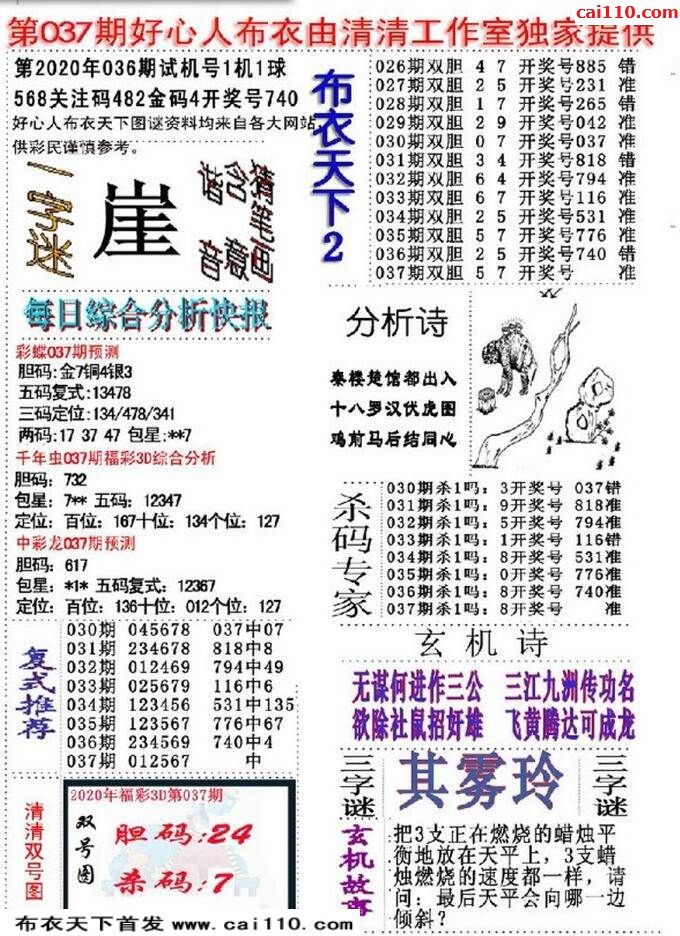 cai110.com
第037期好心人布衣由清清工作室独家提供
第2020年036期试机号1机1球
568关注码482金码4开奖号740
好心人布衣天下图谜资料均来自各大网站,
供彩民谨慎参考。
一字迷
崖
猜笔画
含意
谐音
布衣天下2
026期双胆 4 7 开奖号885 错
027期双胆 2 5 开奖号231 准
028期双胆 1 7 开奖号265 错
029期双胆 2 9 开奖号042 准
030期双胆 0 7 开奖号037 准
031期双胆 3 4 开奖号818 错
032期双胆 6 4 开奖号794 准
033期双胆 6 7 开奖号116 准
034期双胆 2 5 开奖号531 准
035期双胆 5 7 开奖号776 准
036期双胆 2 5 开奖号740 错
037期双胆 5 7 开奖号 准
每日综合分析快报
彩蝶037期预测
胆码:金7铜4银3
五码复式:13478
三码定位:134/478/341
两码:17 37 47 包星:**7
千年虫037期福彩3D综合分析
胆码: 732
包星: 7** 五码: 12347
定位: 百位: 167十位: 134个位: 127
中彩龙037期预测
胆码: 617
包星: *1* 五码复式: 12367
定位: 百位: 136十位: 012个位: 127
分析诗
秦楼楚馆都出入
十八罗汉伏虎图
鸡前马后结同心
杀码专家
030期杀1吗: 3开奖号 037错
031期杀1吗: 9开奖号 818准
032期杀1吗: 5开奖号 794准
033期杀1吗: 1开奖号 116错
034期杀1吗: 8开奖号 531准
035期杀1吗: 0开奖号 776准
036期杀1吗: 8开奖号 740准
037期杀1吗: 8开奖号 准
复式推荐
030期 045678 037中07
031期 234678 818中8
032期 012469 794中49
033期 025679 116中6
034期 123456 531中135
035期 123567 776中67
036期 234569 740中4
037期 012567 中
玄机诗
无谋何进作三公 三江九洲传功名
欲除社鼠招奸雄 飞黄腾达可成龙
三字谜
其雾玲
三字谜
清清双号图
2020年福彩3D第037期
双号图
胆码:24
杀码:7
玄机故事
把3支正在燃烧的蜡烛平
衡地放在天平上，3支蜡
烛燃烧的速度都一样，请
问：最后天平会向哪一边
倾斜？
布衣天下首发 www.cai110.com